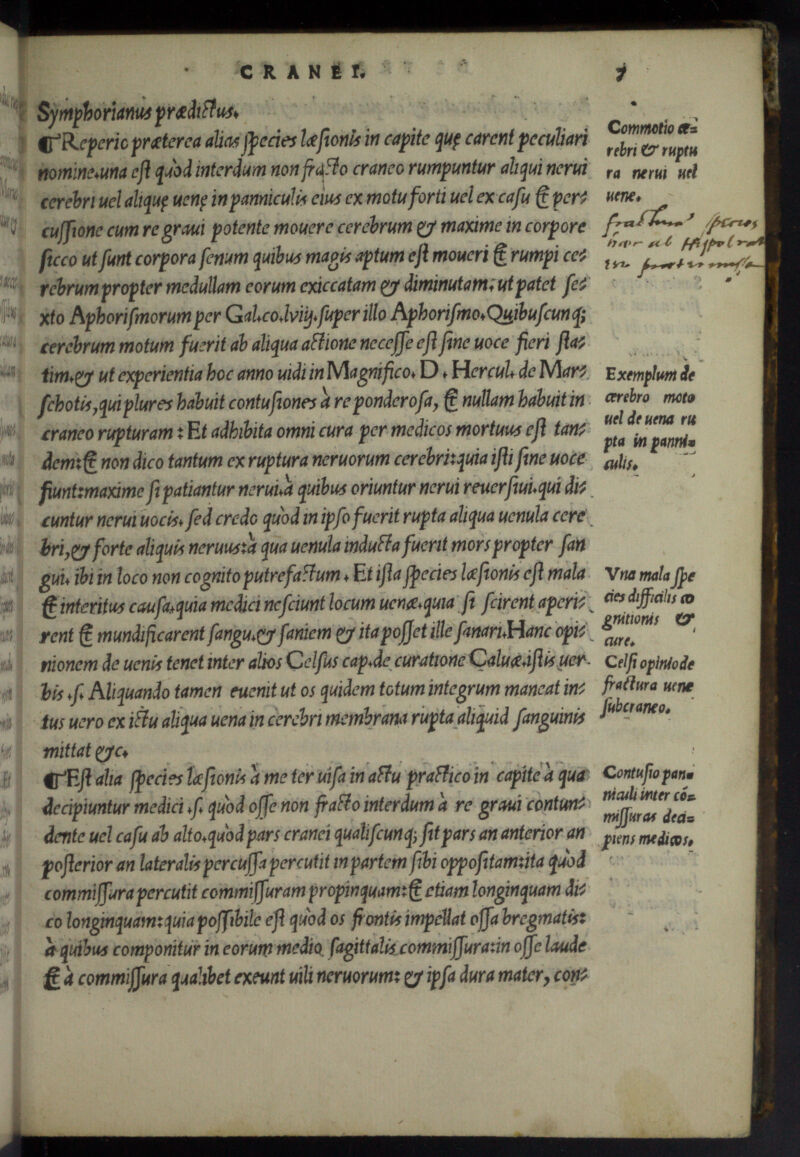 CRANEI.
7
Symphorianus prædictus.
¶Reperio præterea alias species læsionis in capite quę carent peculiari
nomine.una est quòd interdum non fracto craneo rumpuntur aliqui nerui
cerebri uel aliquę uenę in panniculis eius ex motu forti uel ex casu & per=
cussione cum re graui potente mouere cerebrum & maxime in corpore
sicco ut sunt corpora senum quibus magis aptum est moueri & rumpi ce=
rebrum propter medullam eorum exiccatam & diminutam: ut patet se=
xto Aphorismorum per Gal.co.lviij.super illo Aphorismo.Quibuscunq;
cerebrum motum fuerit ab aliqua actione necesse est sine uoce fieri sta=
tim.& ut experientia hoc anno uidi in Magnifico. D. Hercul. de Mar=
schotis, qui plures habuit contusiones à re ponderosa, & nullam habuit in
craneo rupturam: Et adhibita omni cura per medicos mortuus est tan=
dem: & non dico tantum ex ruptura neruorum cerebri: quia isti sine uoce
fiunt: maxime si patiantur nerui.à quibus oriuntur nerui reuersiui.qui di=
cuntur nerui uocis. sed credo quòd in ipso fuerit rupta aliqua uenula cere
bri, & forte aliquis neruus: à qua uenula inducta fuerit mors propter san
gui. ibi in loco non cognito putrefactum. Et ista species læsionis est mala
& interitus causa.quia medici nesciunt locum uenæ.quia si scirent aperi=
rent & mundificarent sangu.& saniem & ita posset ille sanari.Hanc opi=
nionem de uenis tenet inter alios Celsus cap.de curatione Caluæ.istis uer-
bis .s. Aliquando tamen euenit ut os quidem totum integrum maneat in=
tus uero ex ictu aliqua uena in cerebri membrana rupta aliquid sanguinis
mittat &c.
¶Est alia species læsionis à me ter uisa in actu practico in capite à qua
decipiuntur medici .s. quòd osse non fracto interdum à re graui contun=
dente uel casu ab alto.quòd pars cranei qualiscunq; sit pars an anterior an
posterior an lateralis percussa percutit in partem sibi oppositam: ita quòd
commissura percutit commissuram propinquam: & etiam longinquam di=
co longinquam: quia possibile est quòd os frontis impellat ossa bregmatis:
à quibus componitur in eorum medio sagittalis commissura: in osse laude
& à commissura qualibet exeunt uili neruorum: & ipsa dura mater, con=
Commotio ce=
rebri & ruptu
ra nerui uel
uene.
Exemplum de
cerebro moto
uel de uena ru
pta in panni=
culis.
Vna mala spe
cies difficilis co
gnitionis &
cure.
Celsi opinio de
fractura uene
subcraneo.
Contusio pan=
niculi inter cō=
missuras deci=
piens medicos.